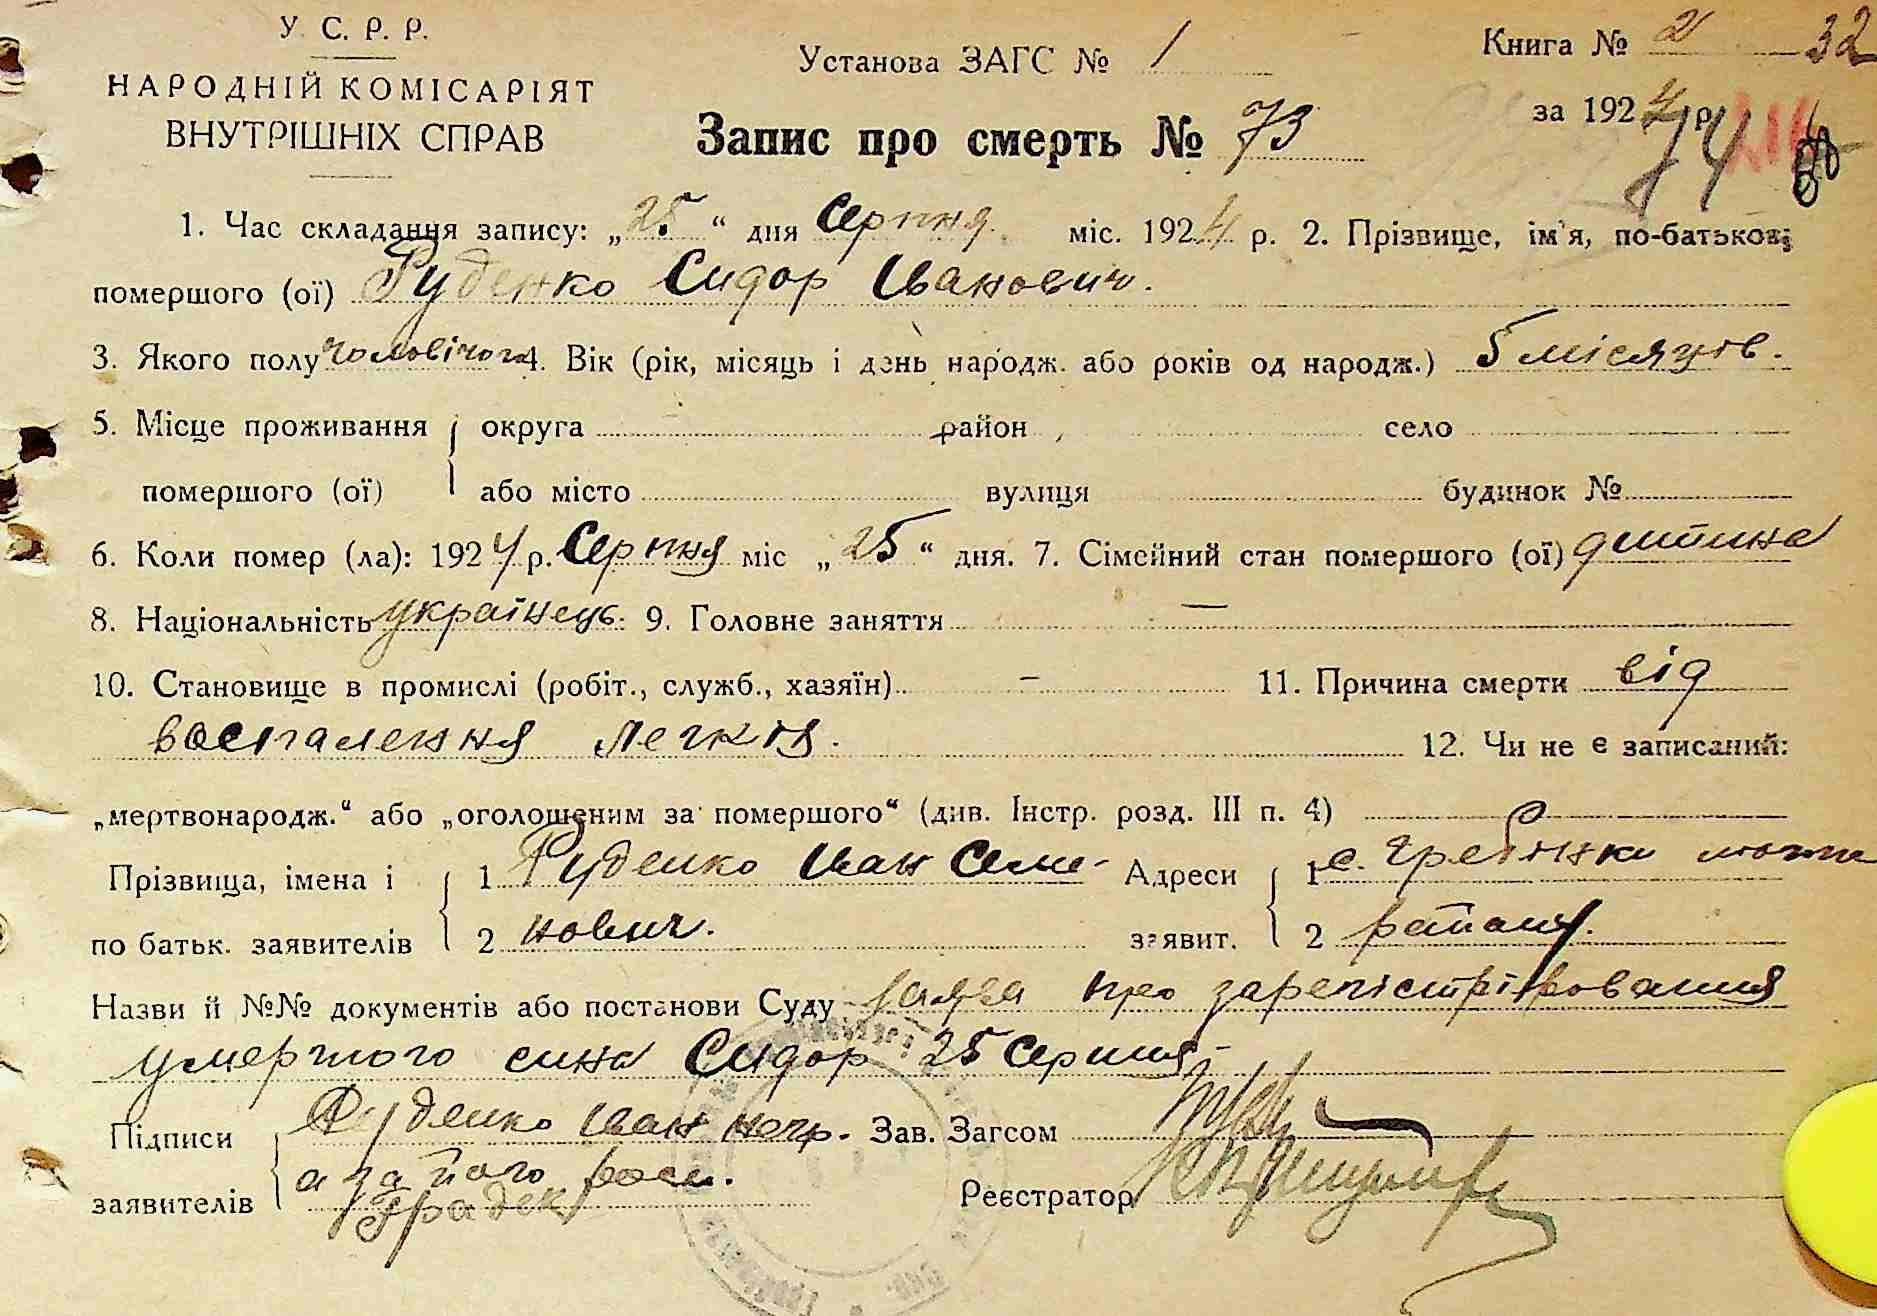 У. С. Р. Р.
НАРОДНІЙ КОМІСАРІЯТ
ВНУТРІШНІХ СПРАВ
Установа ЗАГС № 1
Книга № 2 32
за 1924 р. 74
Запис про смерть № 73
1. Час складання запису: „25“ дня Серпня міс. 1924 р. 2. Прізвище, ім'я, по-батькові
помершого (ої) Руденко Сидор Іванович.
3. Якого полу чоловічого 4. Вік (рік, місяць і день народж. або років од народж.) 5 місяців.
5. Місце проживання округа район село
помершого (ої) або місто вулиця будинок №
6. Коли помер (ла): 1924 р. Серпня міс „25“ дня. 7. Сімейний стан помершого (ої) дитина
8. Національність українець. 9. Головне заняття —
10. Становище в промислі (робіт., служб., хазяїн) - 11. Причина смерти від
воспалення легкія. 12. Чи не є записаний:
„мертвонародж.“ або „оголошеним за помершого“ (див. Інстр. розд. III п. 4)
Прізвища, імена і 1 Руденко Іван Семе- Адреси 1 с. Гребінки
по батьк. заявителів 2 нович. заявит. 2
Назви й №№ документів або постанови Суду заява про зарегістрірования
умершого сина Сидор 25 Серпня
Підписи Руденко Іван негр. Зав. Загсом
а за його росп.
заявителів Реєстратор